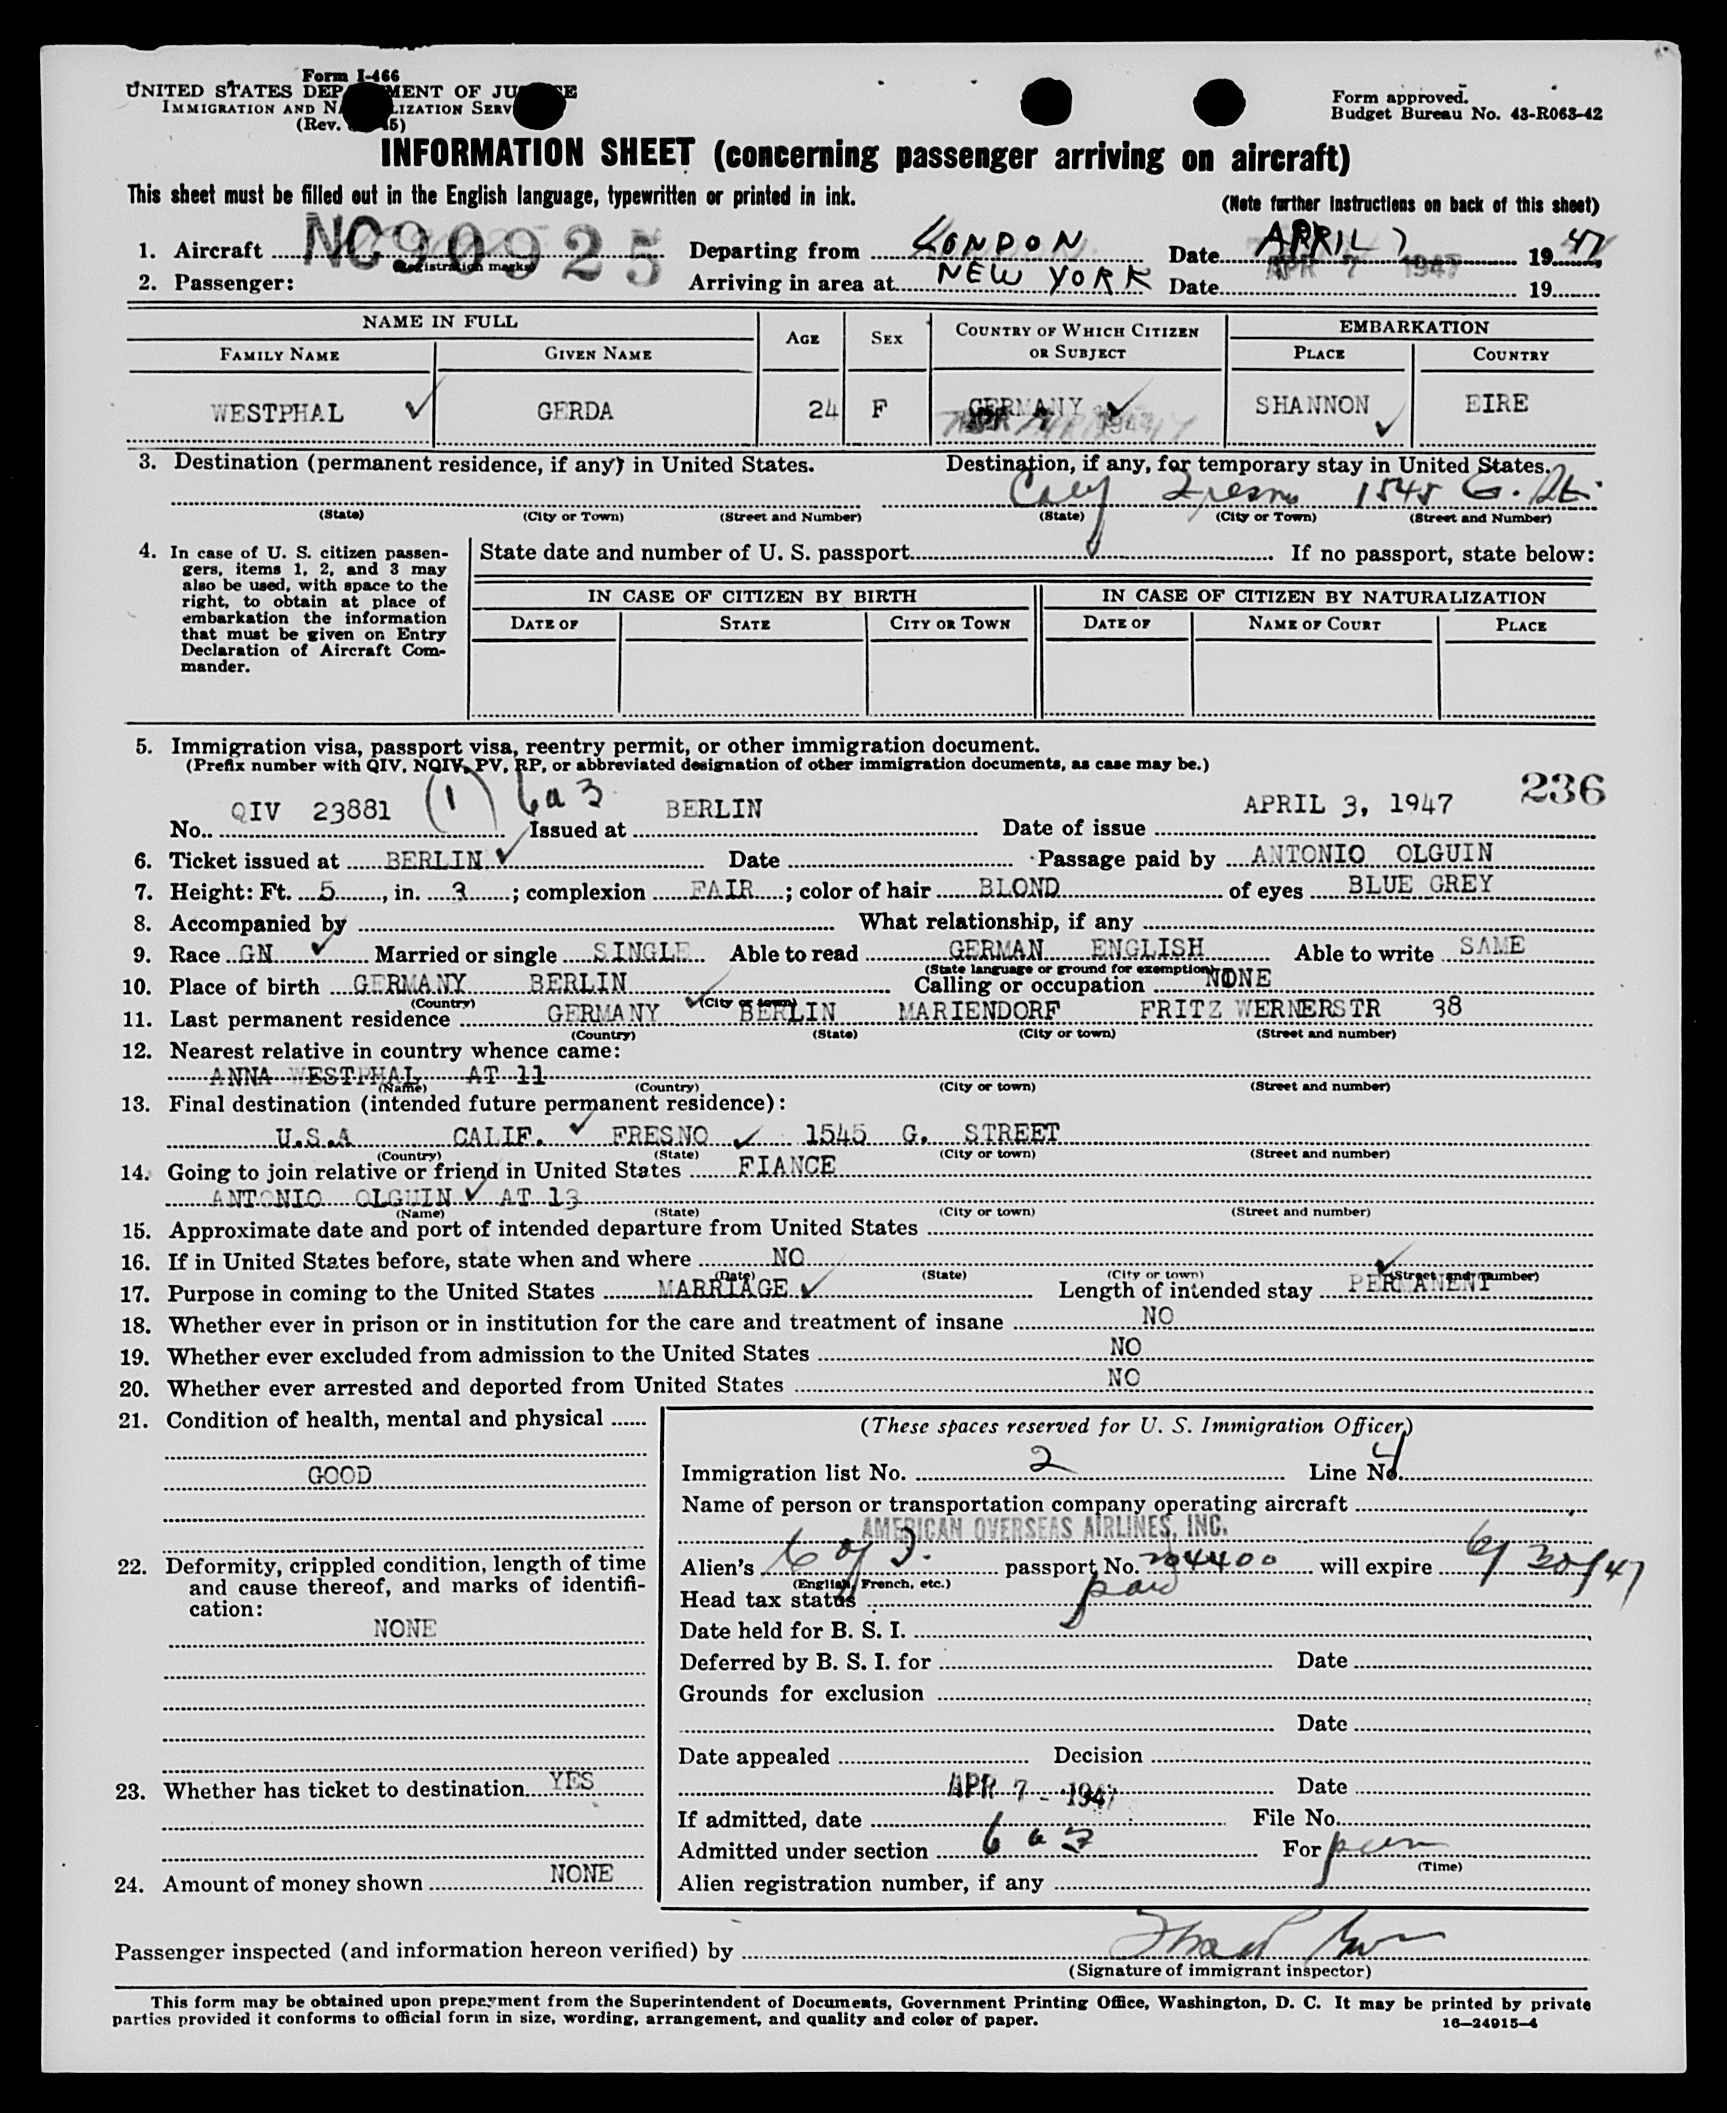 Form I-466
UNITED STATES DEPARTMENT OF JUSTICE
IMMIGRATION AND NATURALIZATION SERVICE
(Rev.
Form approved.
Budget Bureau No. 43-R063-42
INFORMATION SHEET (concerning passenger arriving on aircraft)
This sheet must be filled out in the English language, typewritten or printed in ink.
(Note further instructions on back of this sheet)
1. Aircraft NC90925 Departing from LONDON Date APRIL 7 1947
(Registration marks)
2. Passenger: Arriving in area at NEW YORK Date APR 7 1947 19
NAME IN FULL AGE SEX COUNTRY OF WHICH CITIZEN OR SUBJECT EMBARKATION
FAMILY NAME GIVEN NAME PLACE COUNTRY
WESTPHAL GERDA 24 F GERMANY SHANNON EIRE
3. Destination (permanent residence, if any) in United States. Destination, if any, for temporary stay in United States.
1545 G. St.
(State) (City or Town) (Street and Number) (State) (City or Town) (Street and Number)
4. In case of U. S. citizen passengers, items 1, 2, and 3 may also be used, with space to the right, to obtain at place of embarkation the information that must be given on Entry Declaration of Aircraft Commander.
State date and number of U. S. passport If no passport, state below:
IN CASE OF CITIZEN BY BIRTH IN CASE OF CITIZEN BY NATURALIZATION
DATE OF STATE CITY OR TOWN DATE OF NAME OF COURT PLACE
5. Immigration visa, passport visa, reentry permit, or other immigration document.
(Prefix number with QIV, NQIV, PV, RP, or abbreviated designation of other immigration documents, as case may be.)
236
No. QIV 23881 (1) 6a3 Issued at BERLIN Date of issue APRIL 3, 1947
6. Ticket issued at BERLIN Date Passage paid by ANTONIO OLGUIN
7. Height: Ft. 5, in. 3; complexion FAIR; color of hair BLOND of eyes BLUE GREY
8. Accompanied by What relationship, if any
9. Race GN Married or single SINGLE Able to read GERMAN ENGLISH Able to write SAME
(State language or ground for exemption)
10. Place of birth GERMANY BERLIN Calling or occupation NONE
(Country) (City or town)
11. Last permanent residence GERMANY BERLIN MARIENDORF FRITZ WERNERSTR 38
(Country) (State) (City or town) (Street and number)
12. Nearest relative in country whence came:
ANNA WESTPHAL AT 11
(Name) (Country) (City or town) (Street and number)
13. Final destination (intended future permanent residence):
U.S.A CALIF. FRESNO 1545 G. STREET
(Country) (State) (City or town) (Street and number)
14. Going to join relative or friend in United States FIANCE
ANTONIO OLGUIN AT 13
(Name) (State) (City or town) (Street and number)
15. Approximate date and port of intended departure from United States
16. If in United States before, state when and where NO
(Date) (State) (City or town) (Street and number)
17. Purpose in coming to the United States MARRIAGE Length of intended stay PERMANENT
18. Whether ever in prison or in institution for the care and treatment of insane NO
19. Whether ever excluded from admission to the United States NO
20. Whether ever arrested and deported from United States NO
21. Condition of health, mental and physical
GOOD
22. Deformity, crippled condition, length of time and cause thereof, and marks of identification:
NONE
23. Whether has ticket to destination YES
24. Amount of money shown NONE
(These spaces reserved for U. S. Immigration Officer)
Immigration list No. 2 Line No. 4
Name of person or transportation company operating aircraft
AMERICAN OVERSEAS AIRLINES, INC.
Alien's passport No. will expire 6/30/47
(English, French, etc.)
Head tax status paid
Date held for B. S. I.
Deferred by B. S. I. for Date
Grounds for exclusion
Date
Date appealed Decision
Date
If admitted, date APR 7 - 1947 File No.
Admitted under section 6 a 3 For perm
(Time)
Alien registration number, if any
Passenger inspected (and information hereon verified) by
(Signature of immigrant inspector)
This form may be obtained upon prepayment from the Superintendent of Documents, Government Printing Office, Washington, D. C. It may be printed by private
parties provided it conforms to official form in size, wording, arrangement, and quality and color of paper.
16—24915-4